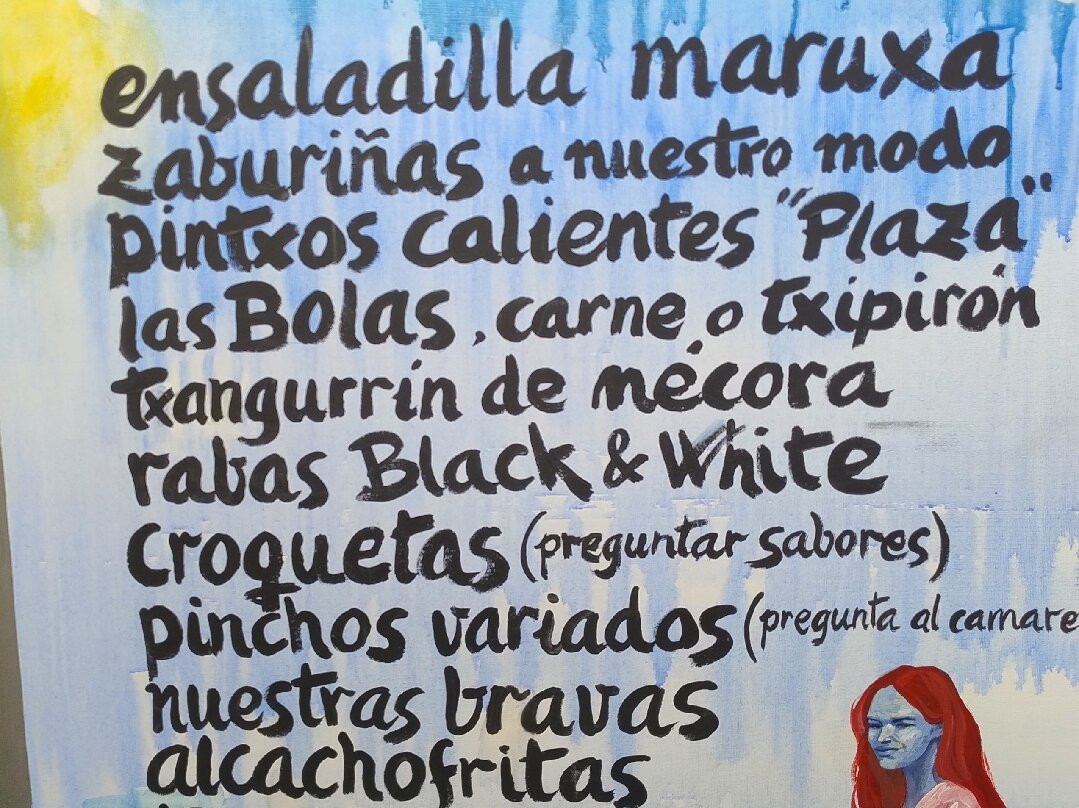 ensaladilla maruxa
zaburiñas a nuestro modo
pintxos calientes "Plaza"
las Bolas, carne o txipirón
txangurrín de nécora
rabas Black & White
Croquetas (preguntar sabores)
pinchos variados (pregunta al camare
nuestras bravas
alcachofritas